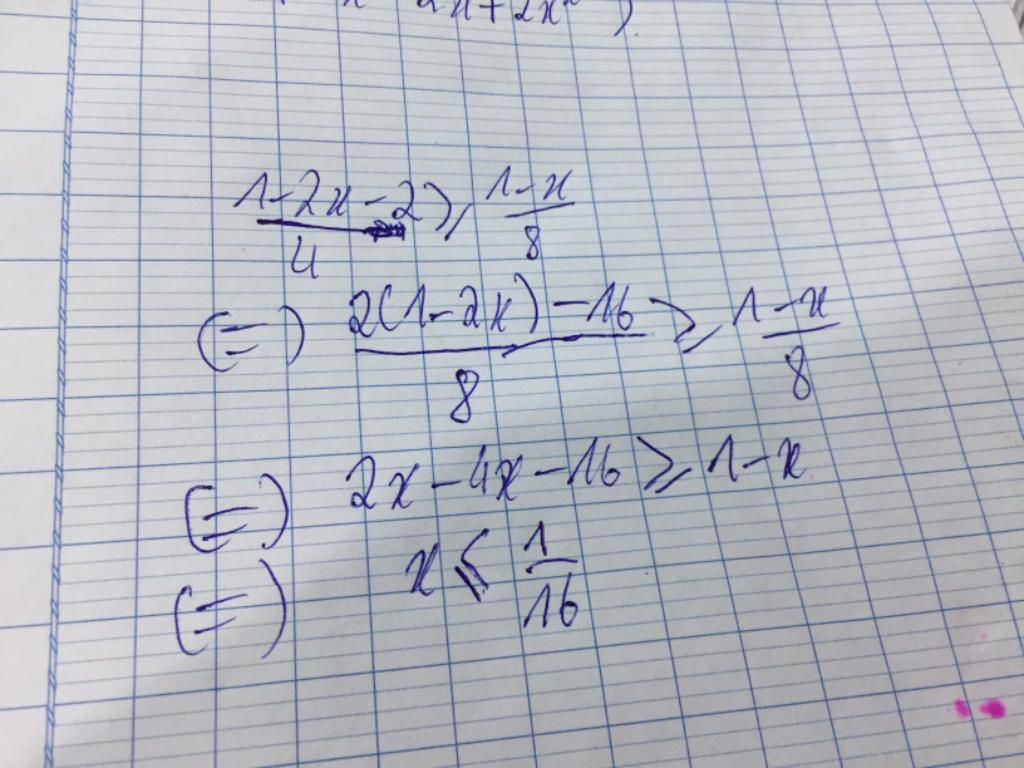 x 2x+2x²)
1-2x-2/4 ⩾ 1-x/8
(=) 2(1-2x)-16/8 ⩾ 1-x/8
(=) 2x-4x-16 ⩾ 1-x
(=) x ⩽ 1/16